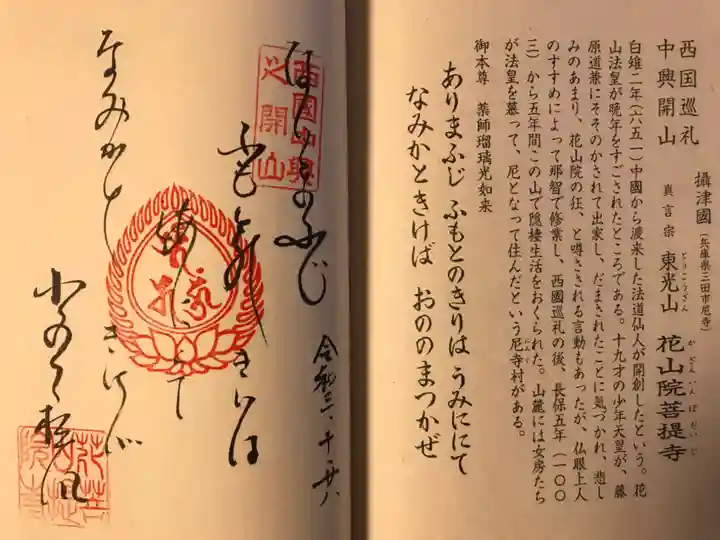 西国巡礼
中興開山
攝津國(兵庫県三田市尼寺)
真言宗 東光山 花山院菩提寺
とうこうざん
かざんいんぼだいじ
白雉二年(六五一)中國から渡来した法道仙人が開創したという。花
山法皇が晩年をすごされたところである。十九才の少年天皇が、藤
原道兼にそそのかされて出家し、だまされたことに気づかれ、悲し
みのあまり、花山院の狂、と噂さされる言動もあったが、仏眼上人
のすすめによって那智で修業し、西國巡礼の後、長保五年(一〇〇
三)から五年間この山で隠棲生活をおくられた。山麓には女房たち
が法皇を慕って、尼となって住んだという尼寺村がある。
にんじ
御本尊 薬師瑠璃光如来
ありまふじ ふもとのきりは うみににて
なみかときけば おののまつかぜ
西國中興
之開山
ふもとの
きりは
なみかと
きけば
小野の松風
令和三、十、廿八
花山
院菩
提寺